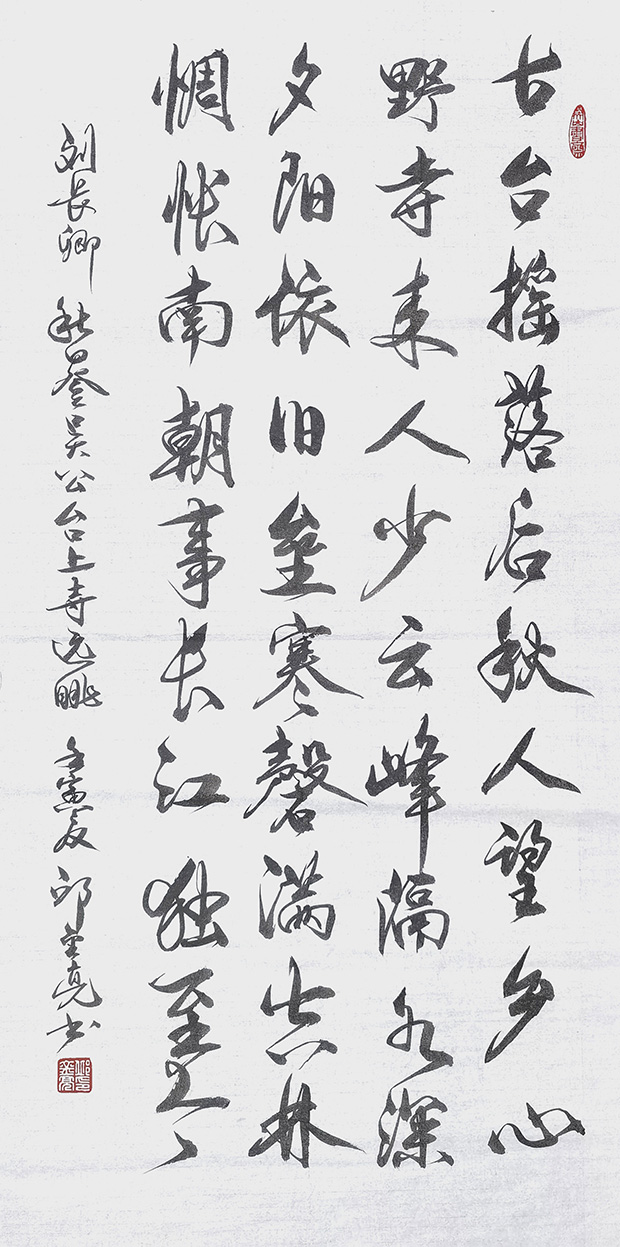 古台摇落后秋入望乡心
野寺来人少云峰隔水深
夕阳依旧垒寒磬满空林
惆怅南朝事长江独至今
刘长卿 秋登吴公台上寺远眺 壬寅夏 邱亮书